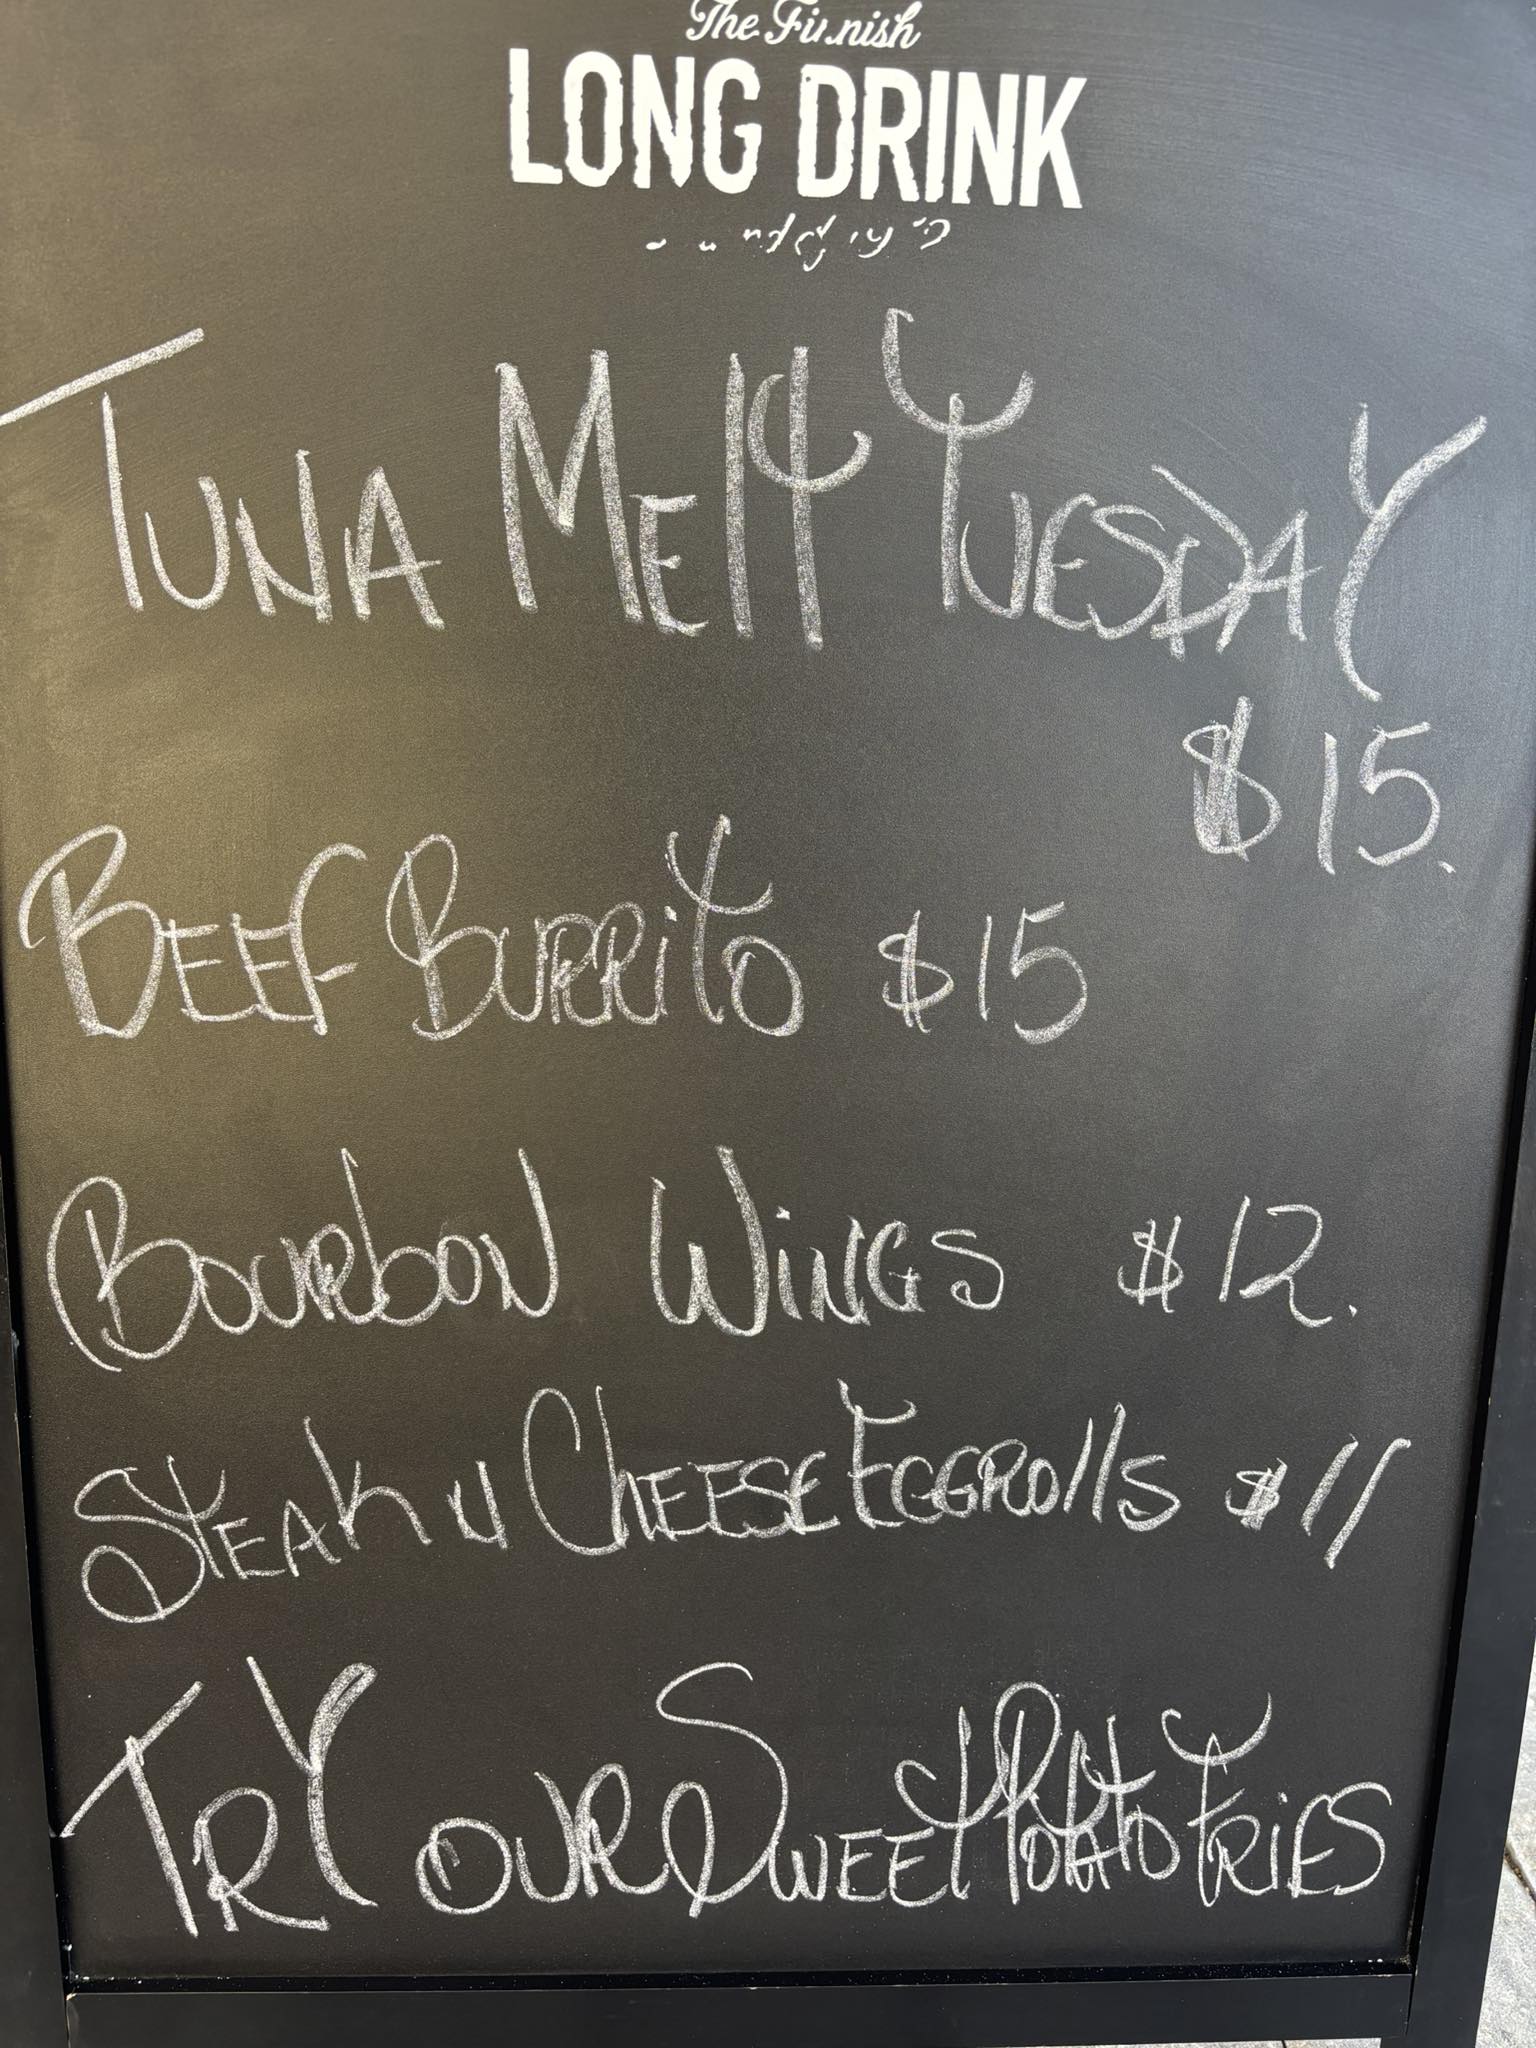 The Finnish
LONG DRINK
TUNA MElt TUESDAY
$15.
BEEF BURRiTO $15
BOURbON WiNGS $12.
STEAK N ChEESE EGGROllS $11
TRY OUR SWEEt POtAtO FRiES